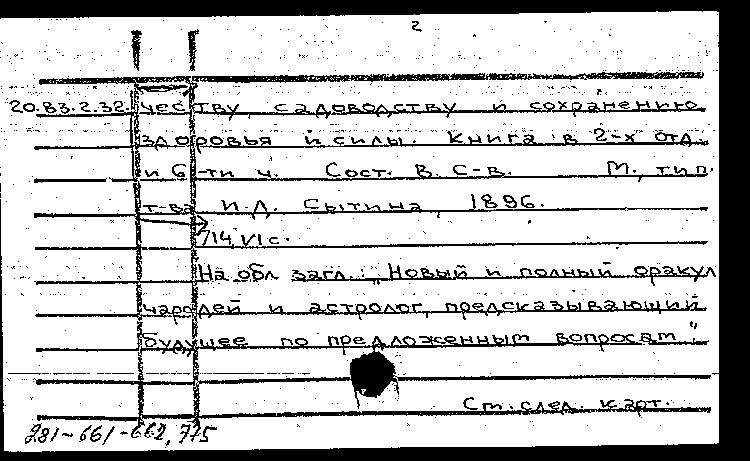 2
20.83.2.32. честву, садоводству и сохранению
здоровья и силы. Книга в 2-х отд.
и 6-ти ч. Сост. В. С-в. М., тип.
т-ва И.Д. Сытина, 1896.
714, VI с.
На обл. загл.: "Новый и полный оракул
чародей и астролог, предсказывающий
будущее по предложенным вопросам".
См. след. карт.
281-661-662, 775